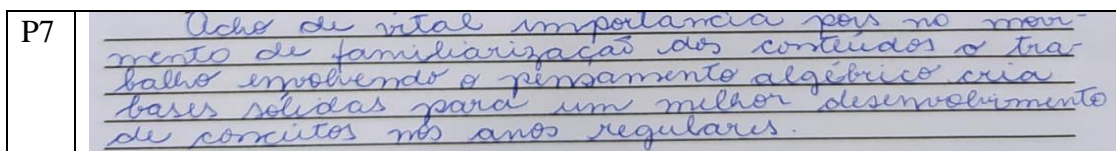 P7
Acho de vital importancia pois no movi-
mento de familiarização dos conteúdos o tra-
balho envolvendo o pensamento algébrico cria
bases solidas para um melhor desenvolvimento
de conceitos nos anos regulares.